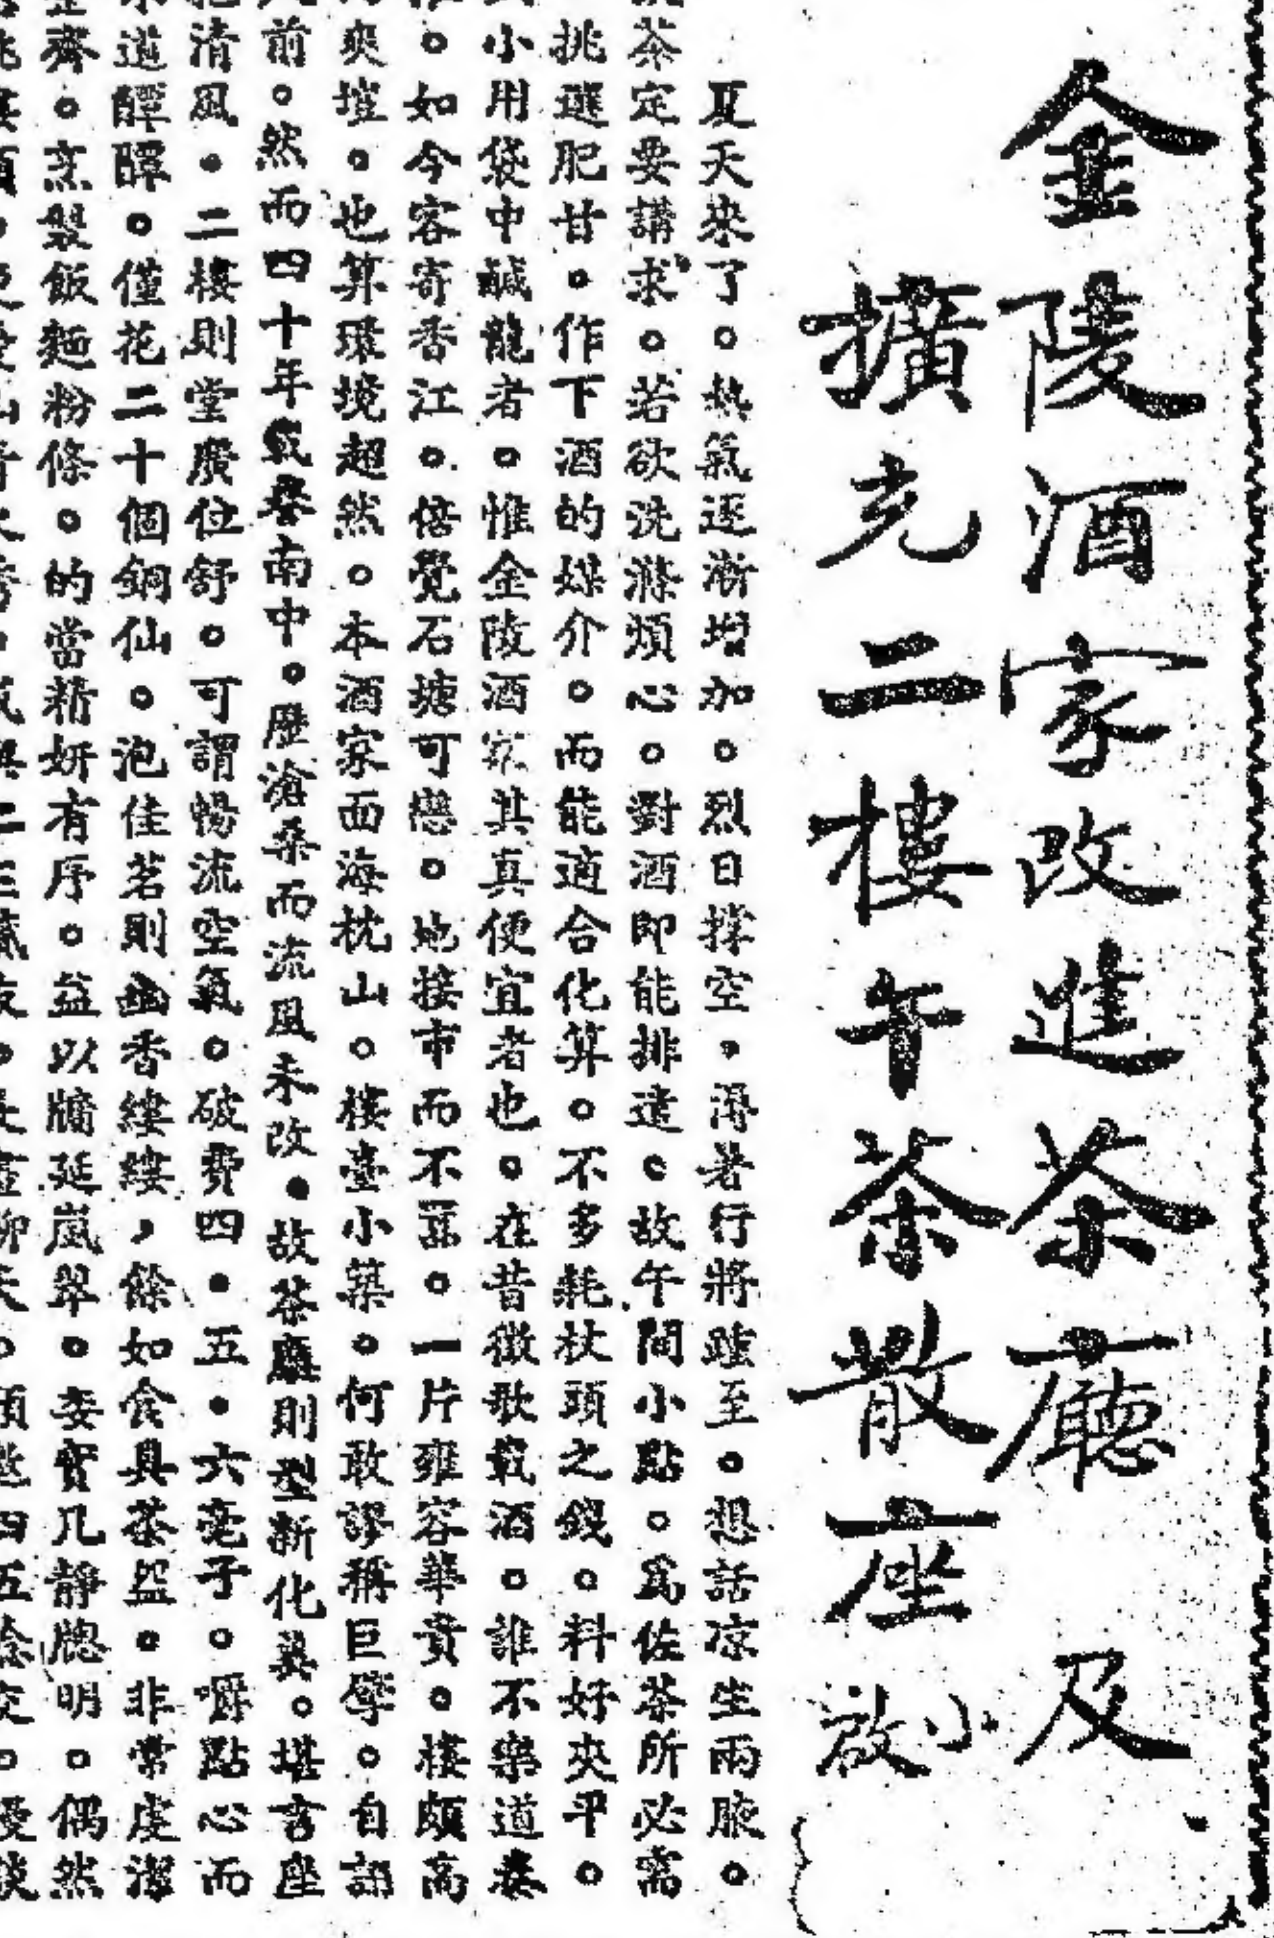 金陵酒家改進茶廳 及
擴充二樓午茶散座 小啟
夏天來了。熱氣逐漸增加。烈日撐空，溽暑行將踵至。想話凉生兩腋。
茶定要講求。若欲洗滌煩心。對酒即能排遣。故午間小點。爲佐茶所必需
挑選肥甘。作下酒的媒介。而能適合化算。不多耗杖頭之錢。料好夾平。
小用袋中鹹龍者。惟金陵酒家其真便宜者也。在昔徵歌載酒。誰不樂道秦
。如今客寄香江。倍覺石塘可戀。地接市而不囂。一片雍容華貴。樓頗高
爽塏。也算環境超然。本酒家面海枕山。樓臺小築。何敢謬稱巨擘。自詡
前。然而四十年載譽南中。歷滄桑而流風未改。故茶廳則型新化奐。堪言座
清風。二樓則堂廣位舒。可謂暢流空氣。破費四．五．六毫子。嚼點心而
道醰醰。僅花二十個銅仙。泡佳茗則幽香縷縷，餘如食具茶盅。非常虔潔
齊。烹製飯麵粉條。的當精妍有序。益以牖延嵐翠。妾實几靜牕明。偶然